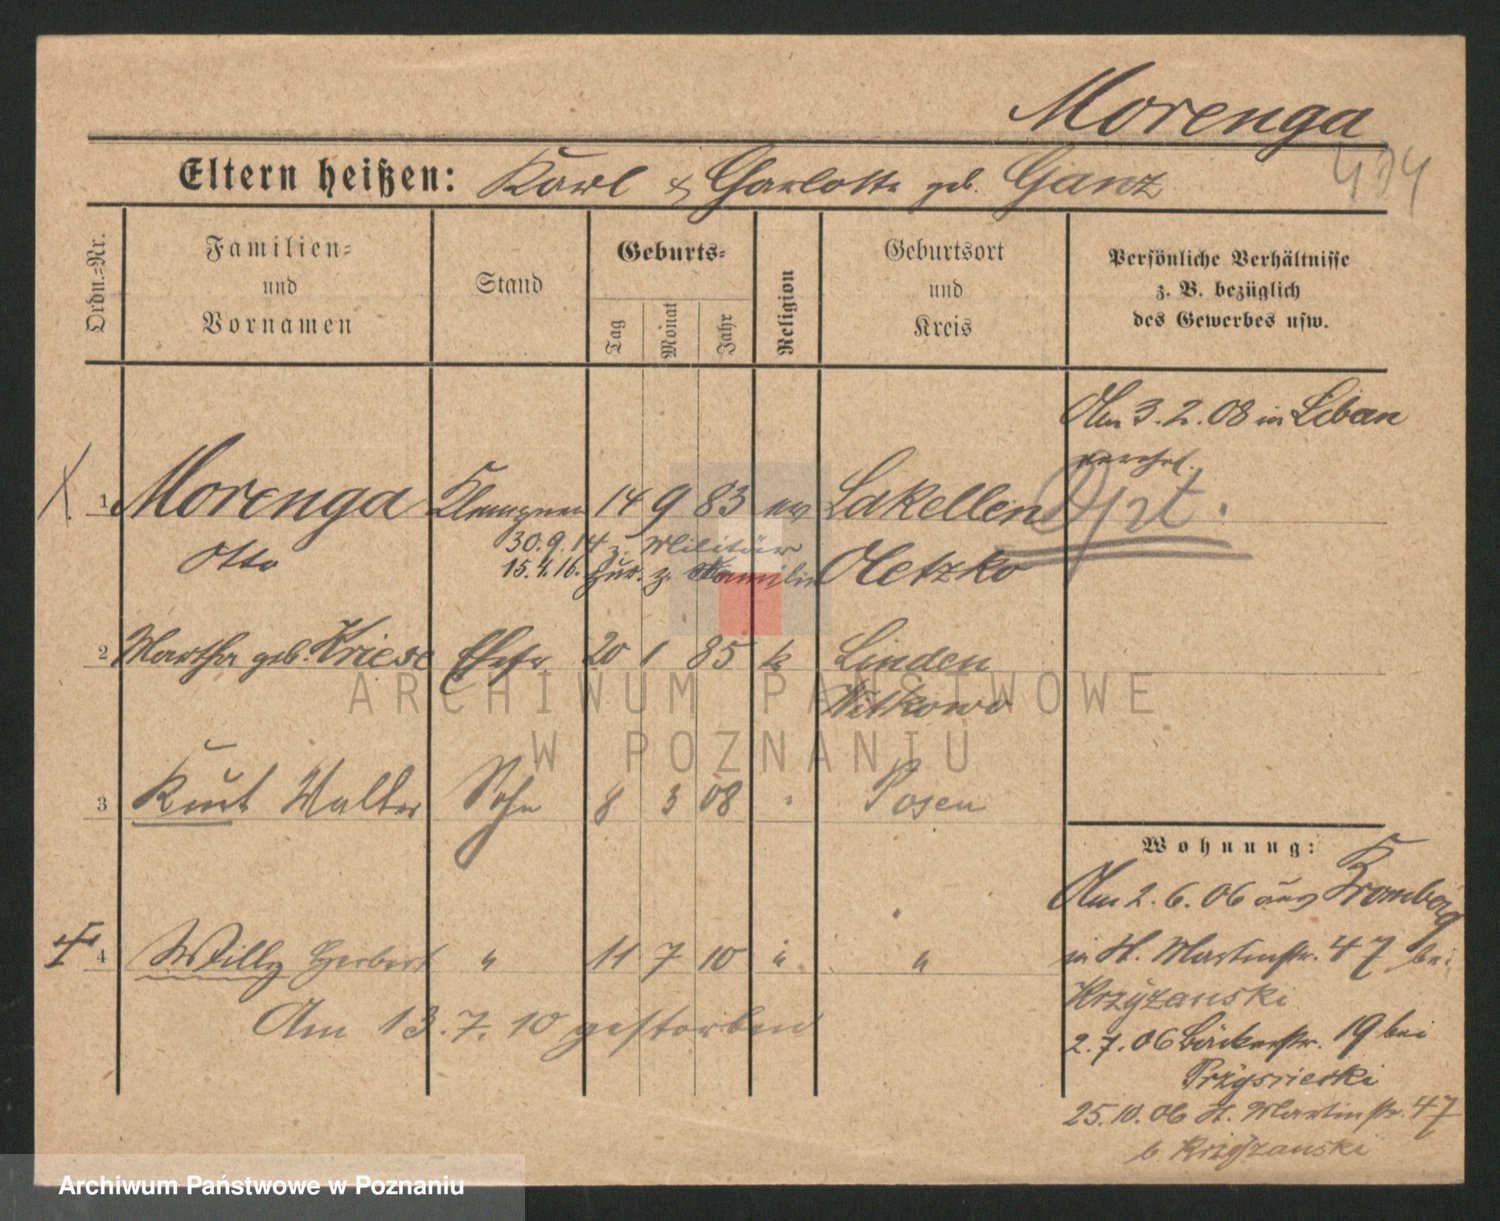 Morenga
434
Eltern heißen: Karl & Charlotte geb. Ganz
Ordn.=Nr.
Familien=
und
Vornamen
Stand
Geburts=
Tag
Monat
Jahr
Religion
Geburtsort
und
Kreis
Persönliche Verhältnisse
z. B. bezüglich
des Gewerbes usw.
Am 3.2.08 in Liban
1 Morenga Klempner 14 9 83 ev Lakellen
Opt.
Otto
30.9.14 z. Militär
15.4.16. zur. z. Familie
Oletzko
2 Martha geb. Kriese Ehefr 20 1 85 k Linden
Witkowo
3 Kurt Walter Sohn 8 3 08 " Posen
Wohnung:
Am 2.6.06 aus Bromberg
4 Willy Herbert " 11 7 10 " "
in St. Martinstr. 47 bei
Krzyzanski
Am 13.7.10 gestorben
2.7.06 Bäckerstr. 19 bei
25.10.06 St. Martinstr. 47
b. Krzyzanski
ARCHIWUM PAŃSTWOWE
W POZNANIU
Archiwum Państwowe w Poznaniu